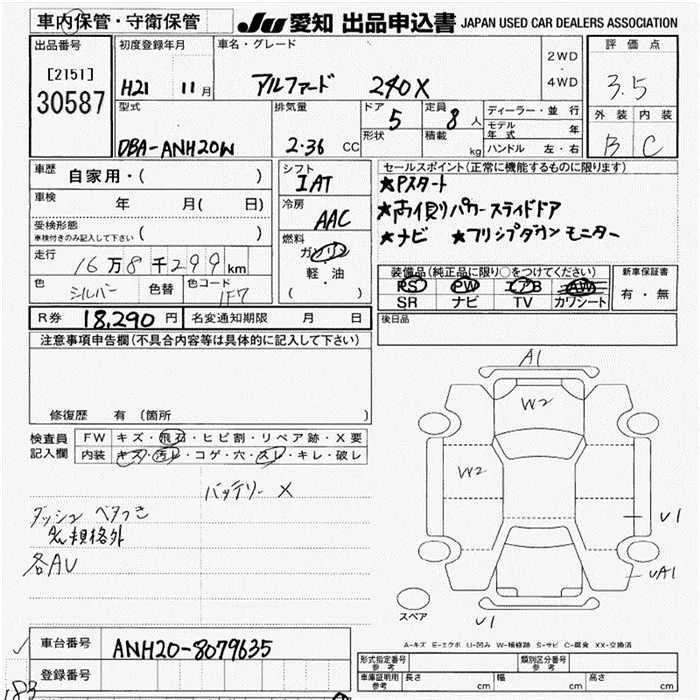 車内保管・守衛保管
JU 愛知 出品申込書 JAPAN USED CAR DEALERS ASSOCIATION
出品番号
[2151]
30587
初度登録年月
H21 11月
車名・グレード
アルファード 240X
2WD
・
4WD
評価点
3.5
外装 内装
B C
型式
DBA-ANH20W
排気量
2.36 CC
ドア
5
形状
定員
8人
積載
kg
ディーラー・並行
モデル年式 年
ハンドル 左・右
車歴
自家用・( )
車検
年 月( 日)
受検形態
車検付きのみ記入して下さい ( )
走行
16万8千299km
色
シルバー
色替
色コード
1F7
シフト
IAT
冷房
AAC
燃料
ガソリン
軽・油
( )
セールスポイント(正常に機能するものに限ります)
★Pスタート
★両側パワースライドドア
★ナビ ★フリップダウンモニター
装備品(純正品に限り○をつけてください)
PS PW エアB AW
SR ナビ TV カワシート
新車保証書
有・無
後日品
R券 18,290円 名変通知期限 月 日
注意事項申告欄(不具合内容等は具体的に記入して下さい)
修復歴 有(箇所 )
検査員
記入欄
FW キズ・飛石・ヒビ割・リペア跡・X要
内装 キズ・汚レ・コゲ・穴・スレ・キレ・破レ
バッテリー X
ダッシュ ベタつき
規格外
各AU
A1
W2
W2
U1
UA1
U1
スペア
A-キズ E-エクボ U-凹み W-補修跡 S-サビ C-腐食 XX-交換済
車台番号 ANH20-8079635
登録番号
183
形式指定番号
参考
類別区分番号
参考
車庫証明用
参考
長さ cm 幅 cm 高さ cm